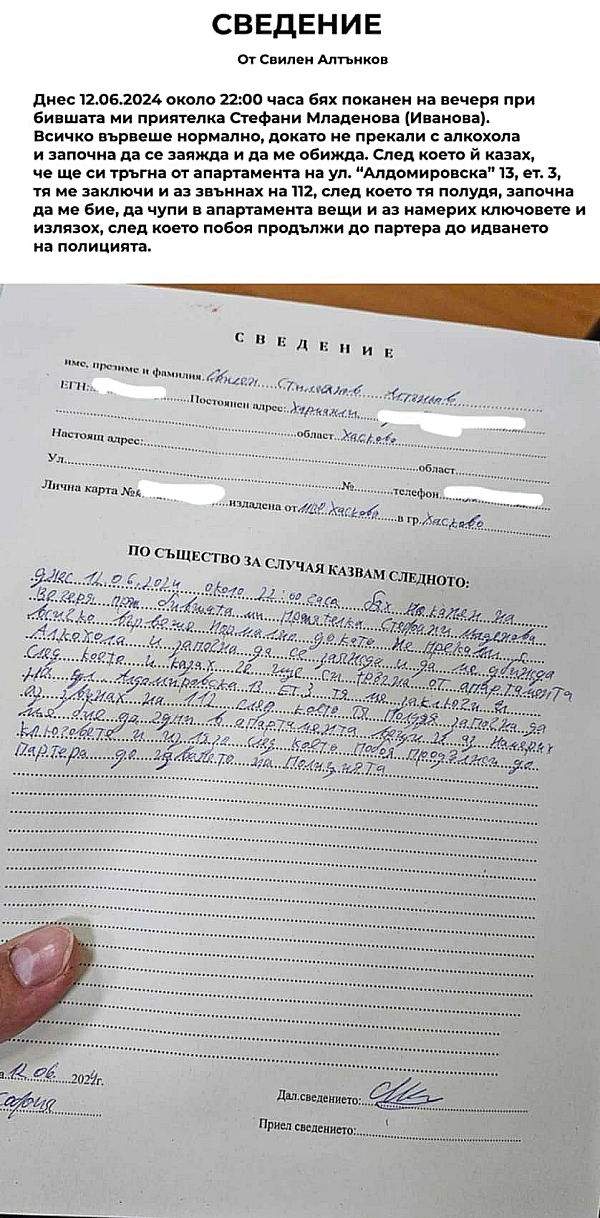 СВЕДЕНИЕ
От Свилен Алтънков
Днес 12.06.2024 около 22:00 часа бях поканен на вечеря при
бившата ми приятелка Стефани Младенова (Иванова).
Всичко вървеше нормално, докато не прекали с алкохола
и започна да се заяжда и да ме обижда. След което й казах,
че ще си тръгна от апартамента на ул. “Алдомировска” 13, ет. 3,
тя ме заключи и аз звъннах на 112, след което тя полудя, започна
да ме бие, да чупи в апартамента вещи и аз намерих ключовете и
излязох, след което побоя продължи до партера до идването
на полицията.
СВЕДЕНИЕ
име, презиме и фамилия Свилен
ЕГН: Постоянен адрес: Харманли
област Хасково
Настоящ адрес: област
Ул. № телефон
Лична карта № издадена от МВР Хасково в гр. Хасково
ПО СЪЩЕСТВО ЗА СЛУЧАЯ КАЗВАМ СЛЕДНОТО:
Днес 12.06.2024 около 22:00 часа бях поканен на
вечеря при бившата ми приятелка Стефани Младенова
всичко вървеше нормално докато не прекали с
Алкохола и започна да се заяжда и да ме обижда
след което и казах че ще си тръгна от апартамента
на ул. Алдомировска 13 ЕТ.3 тя ме заключи и
аз звънах на 112 след което тя полудя започна да
ме бие да чупи в апартамента вещи и аз намерих
ключовете и излязо след което побоя продължи до
партера до идването на Полицията
12.06. 2024г.
София
Дал сведението:
Приел сведението: